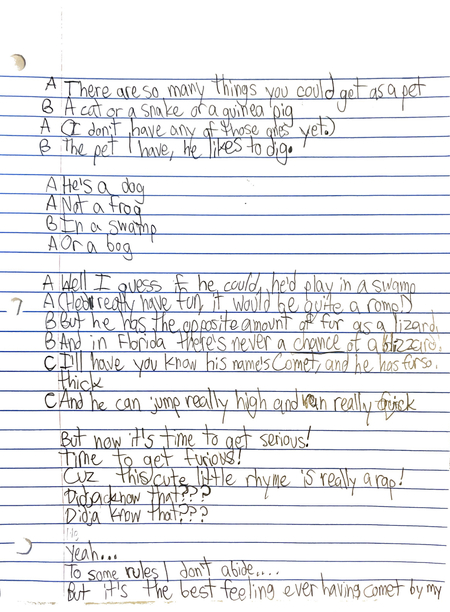 A There are so many things you could get as a pet
B A cat or a snake or a guinea pig
A (I don't have any of those ones yet.)
B The pet I have, he likes to dig.
A He's a dog
A Not a frog
B In a swamp
A Or a bog
A Well I guess if he could, he'd play in a swamp
A (He'd really have fun, it would be quite a romp!)
B But he has the opposite amount of fur as a lizard,
B And in Florida there's never a chance of a blizzard.
C I'll have you know his name's Comet, and he has fur so
thick
C And he can jump really high and run really quick
But now it's time to get serious!
Time to get furious!
Cuz this cute little rhyme is really a rap!
Didja know that???
Didja know that???
No
Yeah...
To some rules I don't abide....
But it's the best feeling ever having comet by my